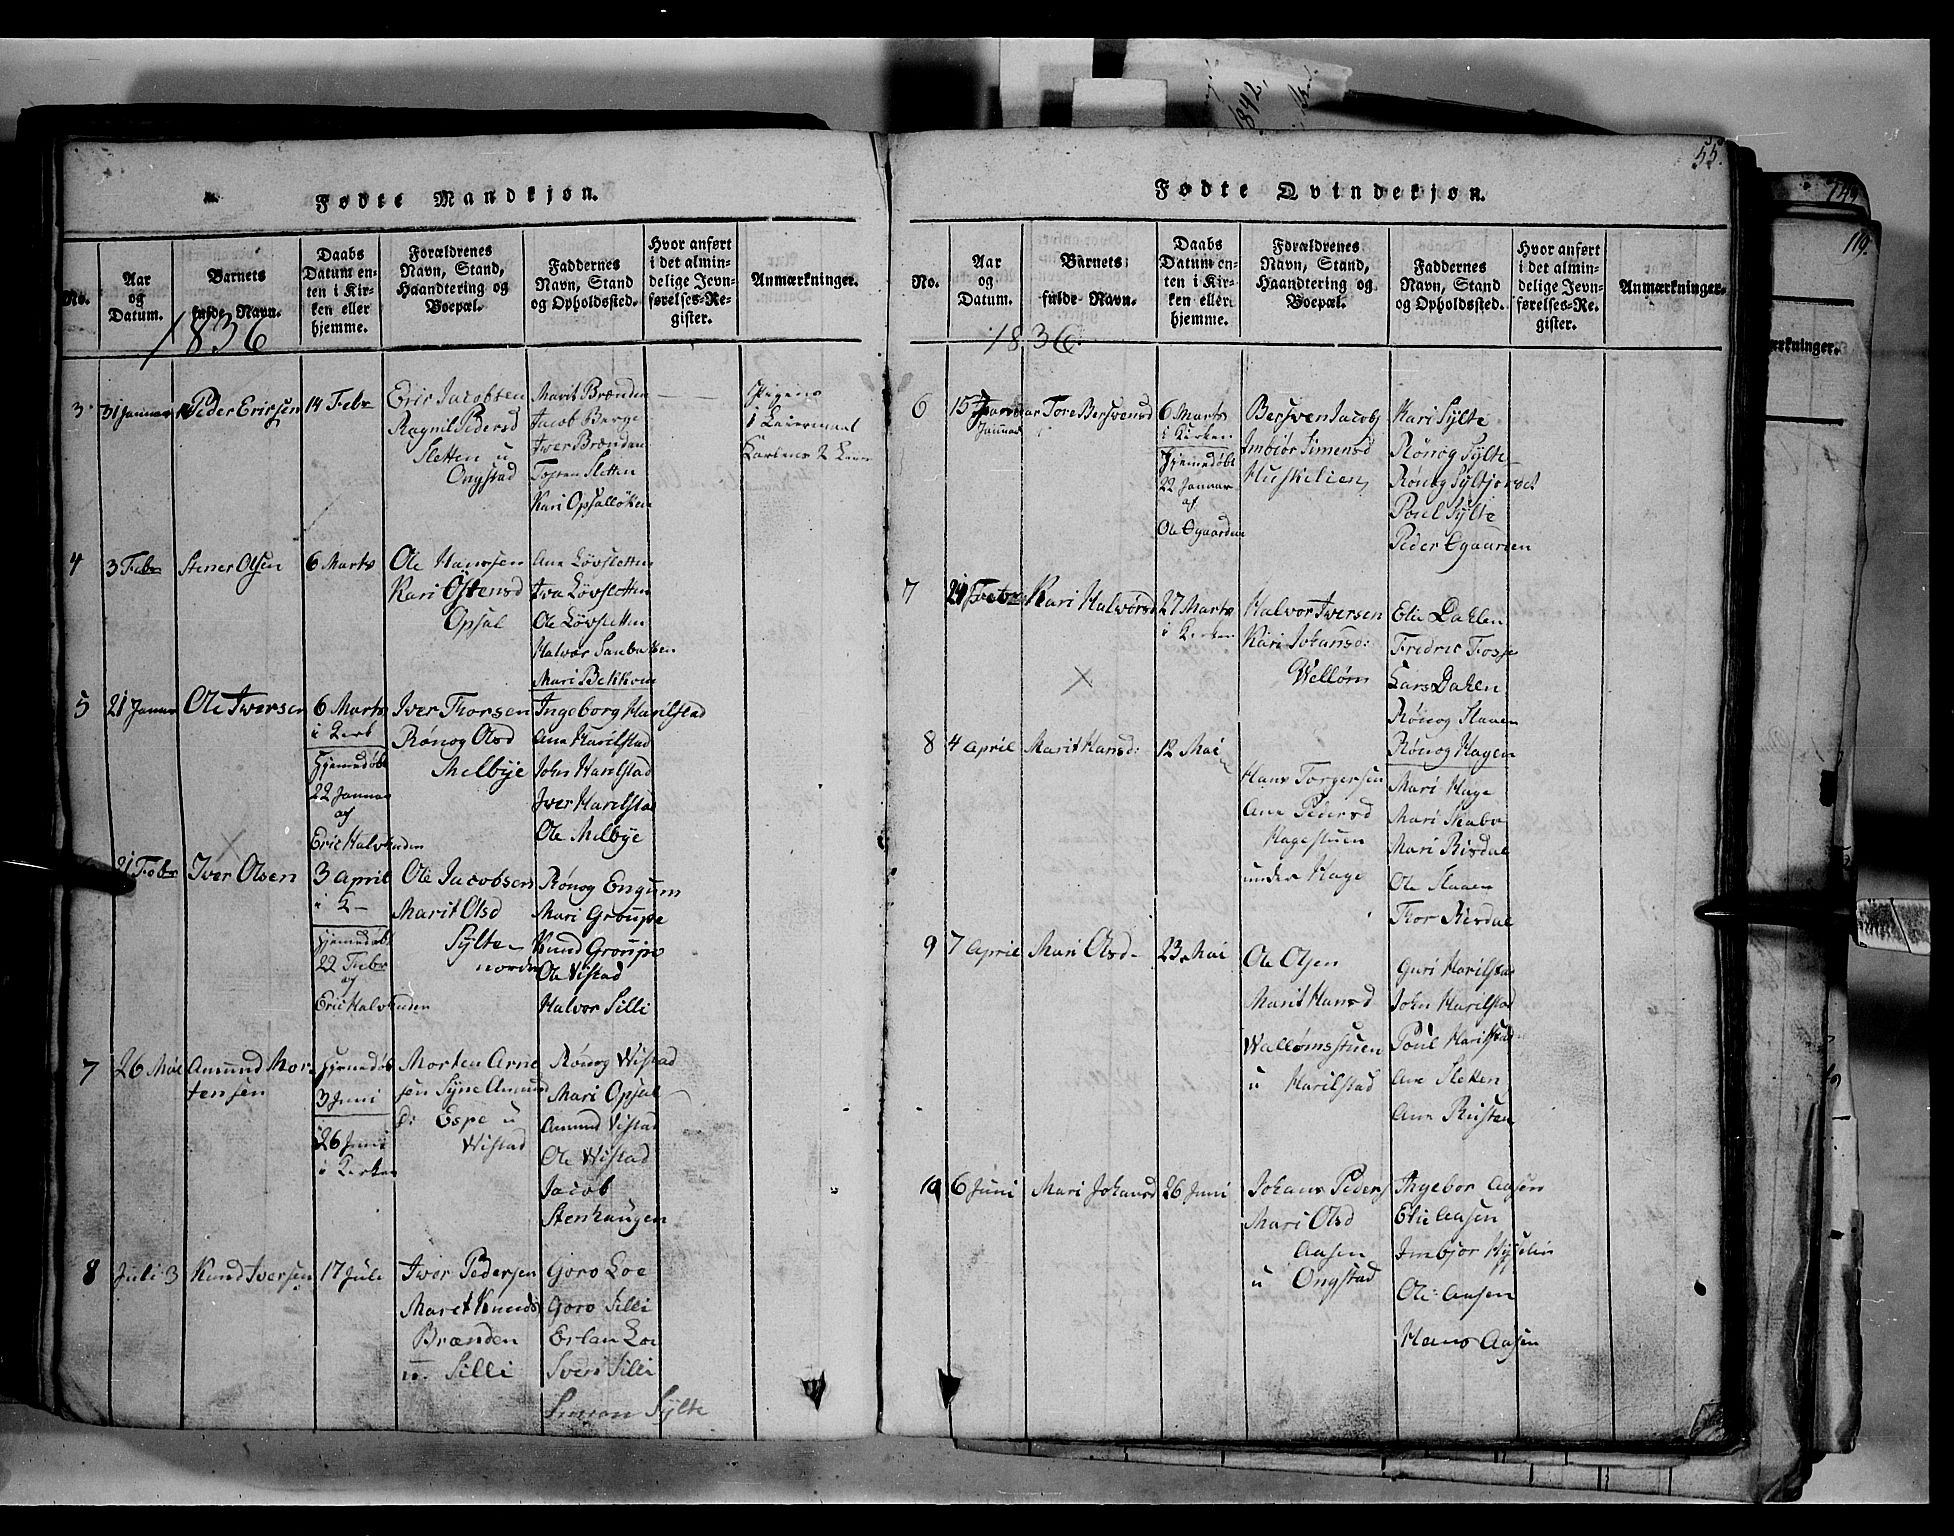 Fødte Mandkjøn.
No.
Aar og Datum.
Barnets fulde Navn.
Daabs Datum enten i Kirken eller hjemme.
Forældrenes Navn, Stand, Haandtering og Boepæl.
Faddernes Navn, Stand og Opholdssted.
Hvor anført i det almindelige Jevnførelses-Register.
Anmærkninger.
1836
3
31 Januar
Peder Ericsen
14 Febr
Eric Jacobsen
Ragnil Pedersd
Sletten u
Ongstad
Marit Brænden
Jacob Berge
Iver Brænden
Sletten
Kari Opsalløken
Pigens
1 Leiermaal
Karlens 2 Leier
4
3 Febr
Stener Olsen
6 Marts
Ole Hansen
Kari Østensd
Opsal
Ane Løvsletten
Iva Løvsletten
Ole Løvsletten
Halvor Sanbakken
Mari
5
21 Januar
Ole Iversen
6 Marts
i Kirk
Hjemedøbt
22 Januar
af
Eric Halvkaden
Iver Thorsen
Rønog Olsd
Melbye
Ingeborg Harilstad
Ane Harilstad
John Harilstad
Iver Harilstad
Ole Melbye
21 Febr
Iver Olsen
3 April
i K-
Hjemedøbt
22 Febr
af
Eric Halvkaden
Ole Jacobsen
Marit Olsd
Sylte
nordre
Rønog Engum
Mari Groupe
Knud Groupe
Ole Vistad
Halvor Silli
7
26 Mai
Amund Mor-
tensen
Hjemedøbt
3 Juni
26 Juni
i Kirken
Morten Arne
sen Syne Amund
d: Espe u
Wistad
Rønog Wistad
Mari Opsal
Amund Vistad
Ole Wistad
Jacob
Stenhaugen
8
Juli 3
Knud Iversen
17 Juli
Iver Pedersen
Maret Knuds
Brænden
u. Silli
Goro Loe
Goro Silli
Erlan Loe
Sveri Silli
Simon Sylte
55.
Fødte Qvindekjøn.
No.
Aar og Datum.
Barnets fulde Navn.
Daabs Datum enten i Kirken eller hjemme.
Forældrenes Navn, Stand, Haandtering og Boepæl.
Faddernes Navn, Stand og Opholdssted.
Hvor anført i det almindelige Jevnførelses-Register.
Anmærkninger.
1836
6
15 Januar
Januar
Tore Bersvensd
6 Marts
i Kirken
Hjemedøbt
22 Januar
af
Ole Øgaarden
Bersven Jacobs
Imbiør Simensd
Huskelien
Kari Sylte
Rønog Sylte
Rønog Syltjordet
Poul Sylte
Peder Øgaarden
7
24 Febr
Kari Halvorsd
27 Marts
i Kirken
Halvor Iversen
Kari Johansd:
Wellom
Elie Dahlen
Fredric Fosse
Lars Dahlen
Rønog Staaen
Rønog Hagen
8
4 April
Marit Hansd:
12 Mai
Hans Torgersen
Ane Pedersd
Hagestuen
under Hage
Mari Hage
Mari Skabo
Mari Risdal
Ole Staaen
Thor Risdal
9
7 April
Mari Olsd-
23 Mai
Ole Olsen
Marit Hansd
Wallømsstuen
u Harilstad
Guri Harilstad
John Harilstad
Poul Harilstad
Ane Sletten
Ane Rusten
10
6 Juni
Mari Johansd
26 Juni
Johans Peders
Mari Olsd
Aasen
u Ongstad
Ingebor Aasen
Elie Aasen
Imbjor
Ole Aasen
Hans Aasen
1842,
149
119.
ærkninger.